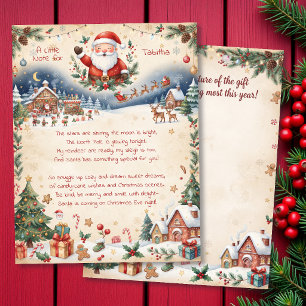 A Little
Note for
Tabitha
The stars are shining the moon is bright,
The North Pole is glowing tonight.
My reindeer are ready, my sleigh is too,
And Santa has something special for you!
So snuggle up cozy and dream sweet dreams,
of candy-cane wishes and Christmas scenes.
So be kind be merry and smile with delight-
Santa is coming on Christmas Eve night!
ture of the gift
g most this year!